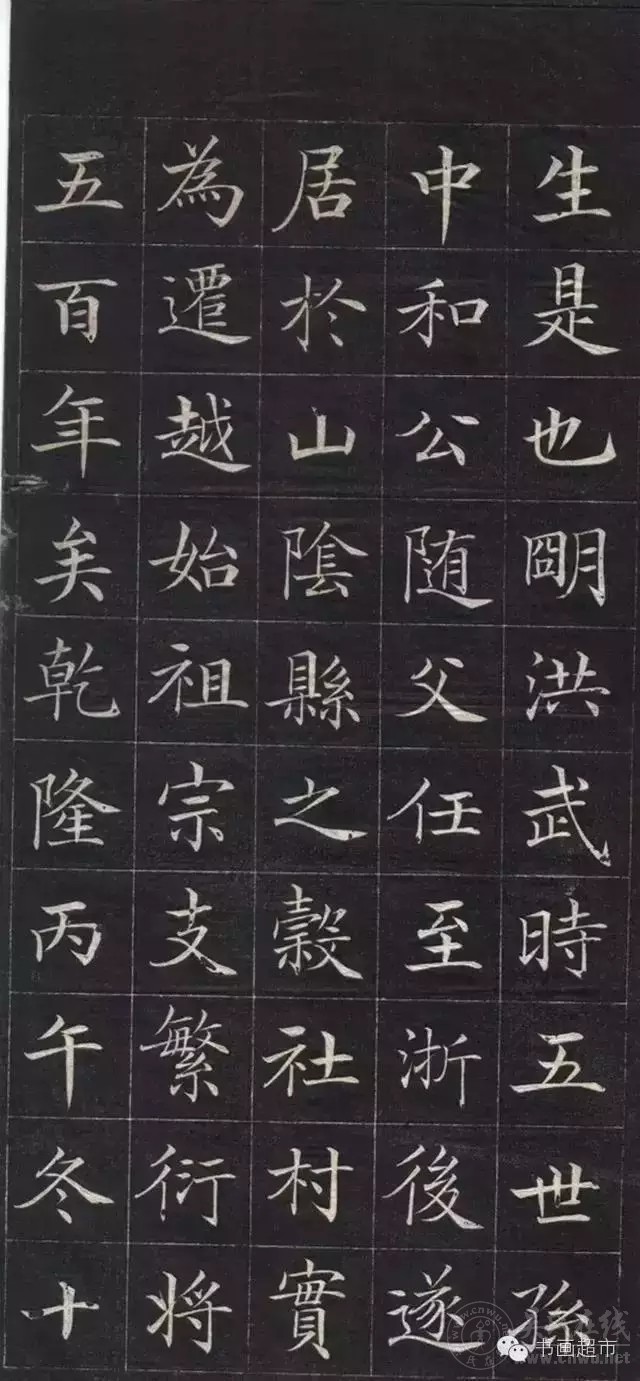 生是也明洪武時五世孫
中和公随父任至浙後遂
居於山陰縣之穀社村實
為遷越始祖宗支繁衍将
五百年矣乾隆丙午冬十
书画超市
www.cnwu.net